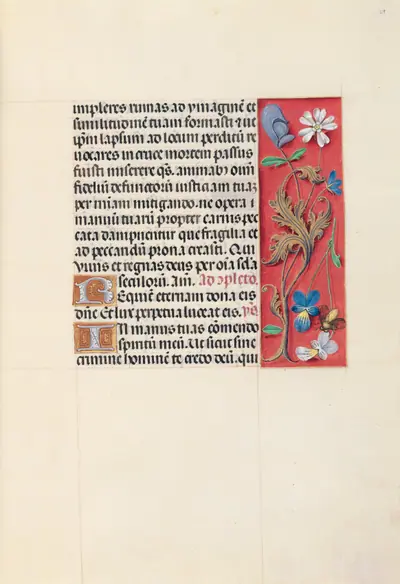 impleres ruinas ad ymaginē et
similitudinē tuam formasti ⁊ ut
ip̄m lapsum ad locum perditū re
uocares in cruce mortem passus
fuisti miserere q̄s. animab⁹ om̄
fidelium defunctorū iusticiam tuaȝ
per miam mitigando. ne opera
manuū tuarū propter carnis pec
cata dampnentur que fragilia et
ad peccandū prona creasti. Qui
viuis et regnas deus per oīa scl̄a
seculorū. Am. Ad cōpleto.
Requiem eternam dona eis
dn̄e Et lux perpetua luceat eis. p̄s
In manus tuas cōmendo
spiritū meū. Ut sicut sine
crimine hominē te credo deū. qui